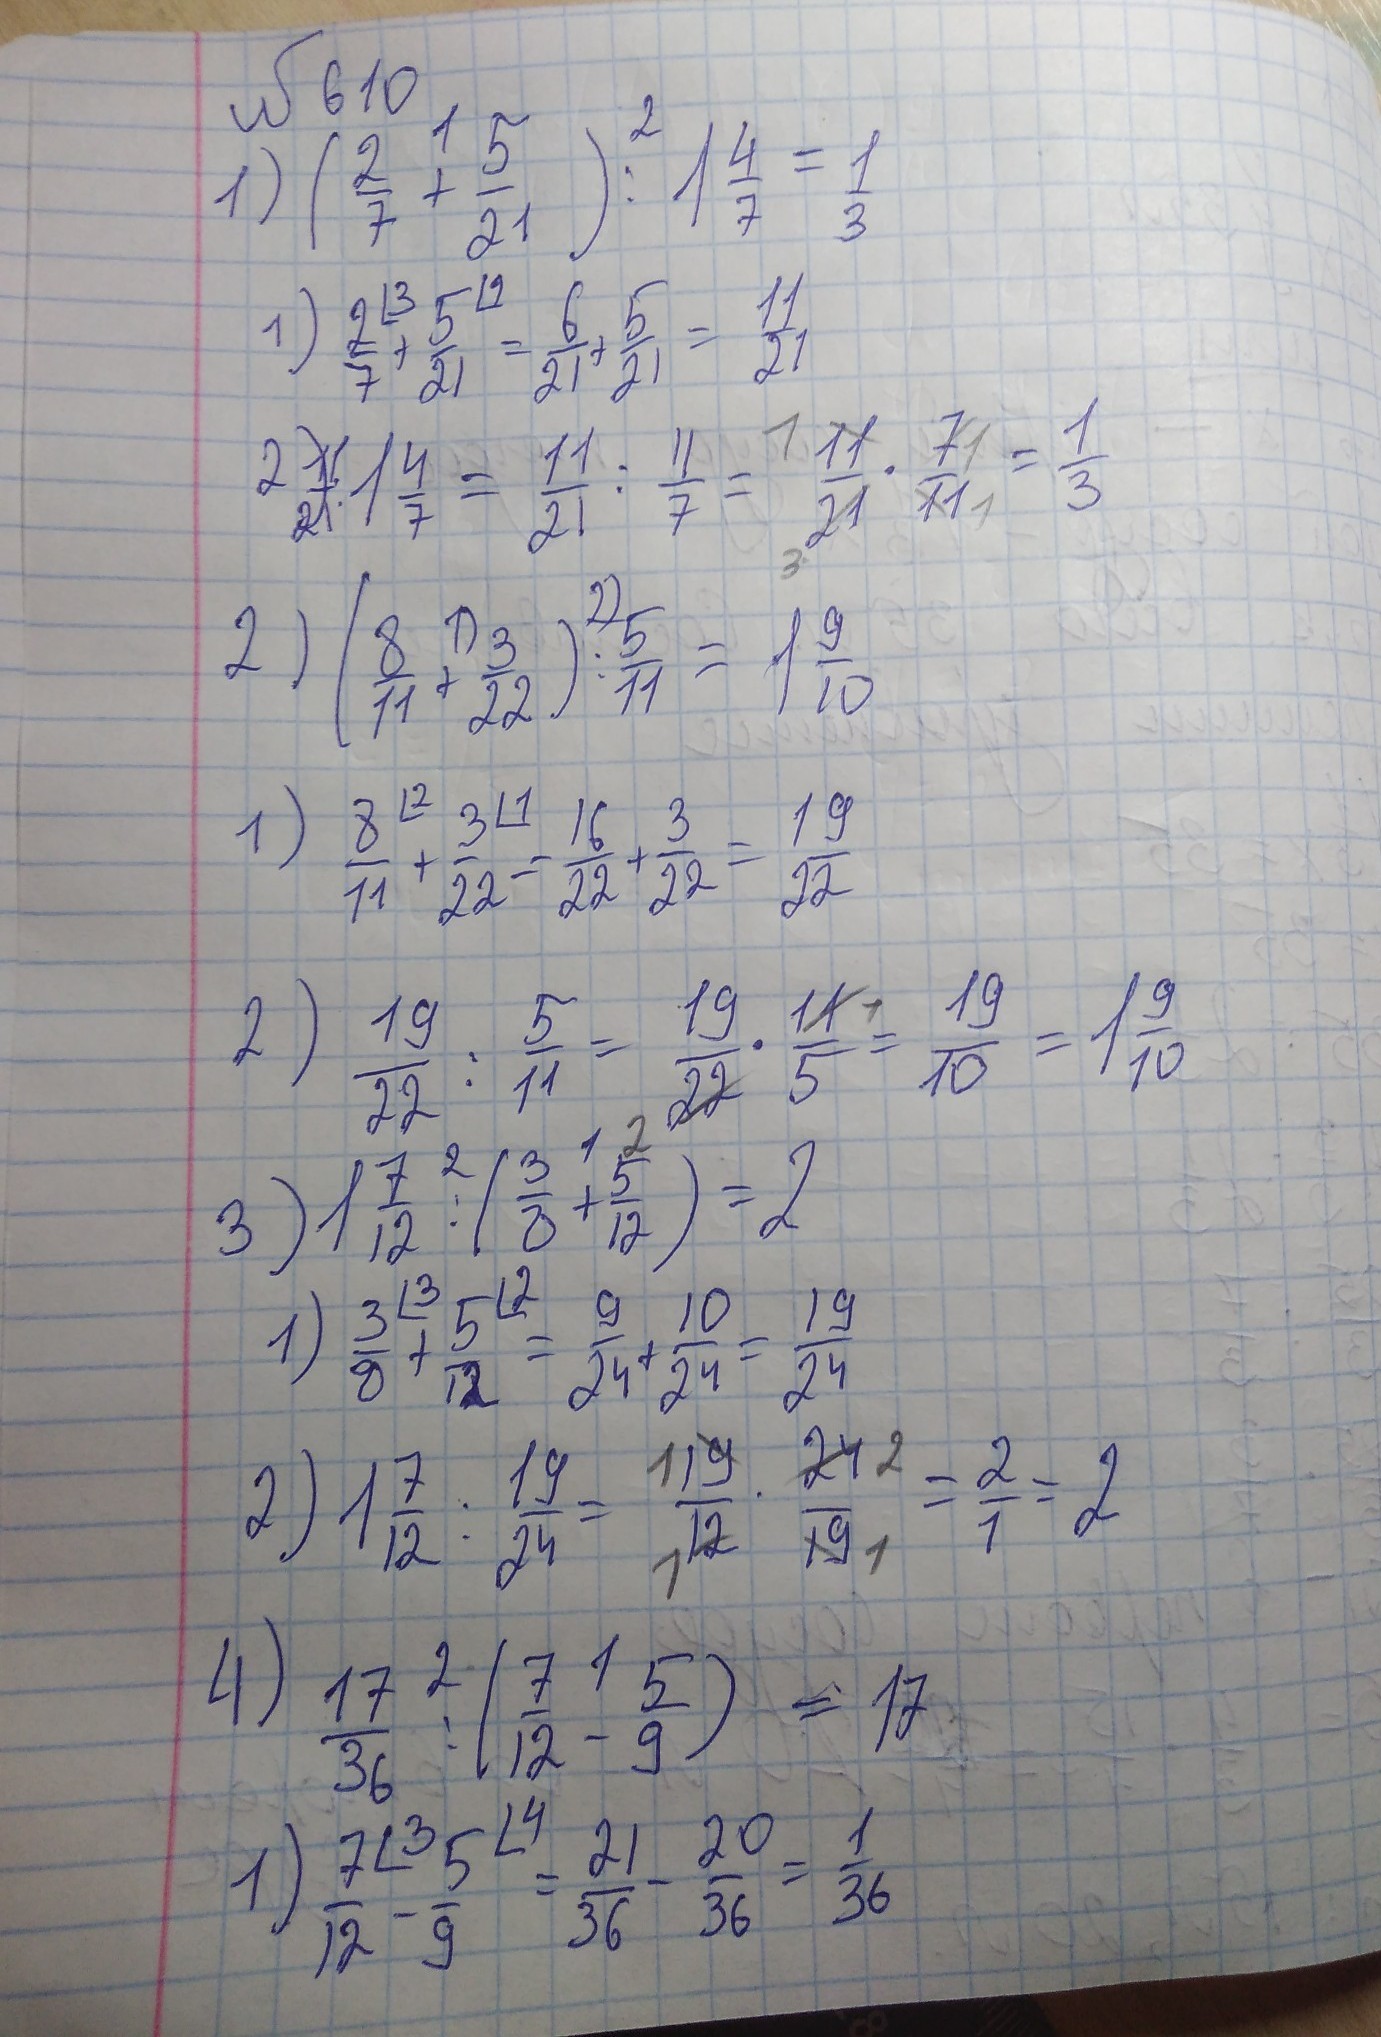 № 610
1) (2/7 + 5/21) : 1 4/7 = 1/3
1) 2/7 + 5/21 = 6/21 + 5/21 = 11/21
2) 11/21 : 1 4/7 = 11/21 : 11/7 = 11/21 · 7/11 = 1/3
2) (8/11 + 3/22) : 5/11 = 1 9/10
1) 8/11 + 3/22 = 16/22 + 3/22 = 19/22
2) 19/22 : 5/11 = 19/22 · 11/5 = 19/10 = 1 9/10
3) 1 7/12 : (3/8 + 5/12) = 2
1) 3/8 + 5/12 = 9/24 + 10/24 = 19/24
2) 1 7/12 : 19/24 = 19/12 · 24/19 = 2/1 = 2
4) 17/36 : (7/12 - 5/9) = 17
1) 7/12 - 5/9 = 21/36 - 20/36 = 1/36